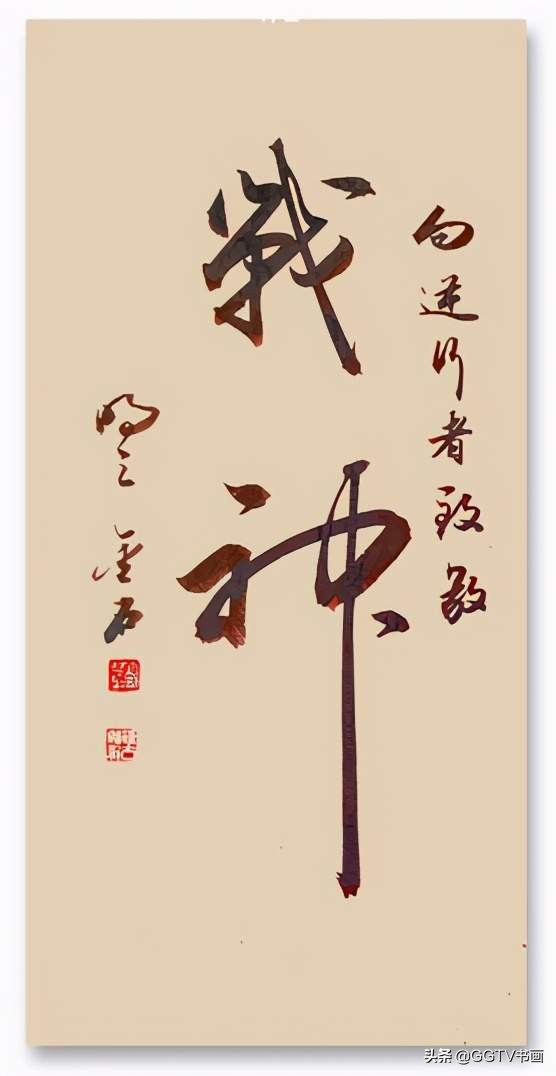 向逆行者致敬
戰神
金石
头条 @GGTV书画